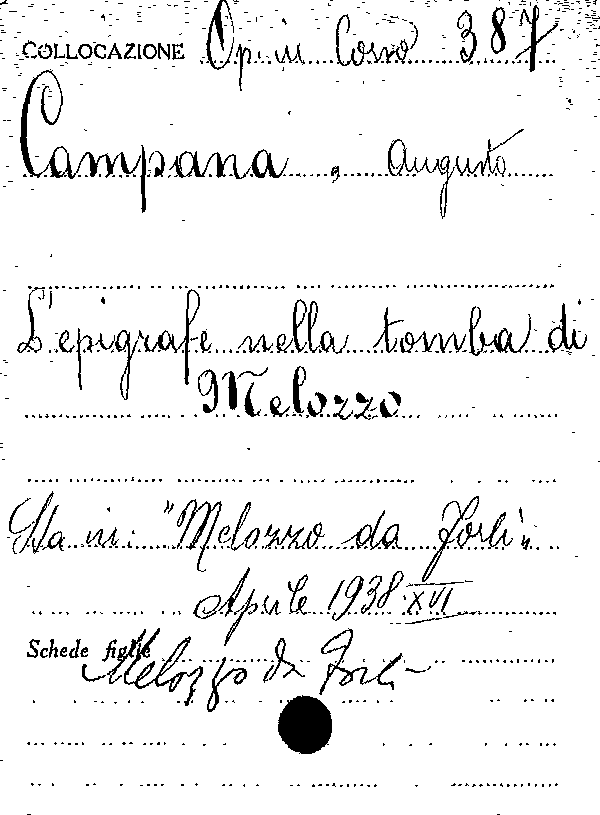 COLLOCAZIONE Op. in Corso 387
Campana, Augusto
L'epigrafe nella tomba di
Melozzo
Sta in: "Melozzo da Forlì"
Aprile 1938 XVI
Schede figlie
Melozzo da Forlì